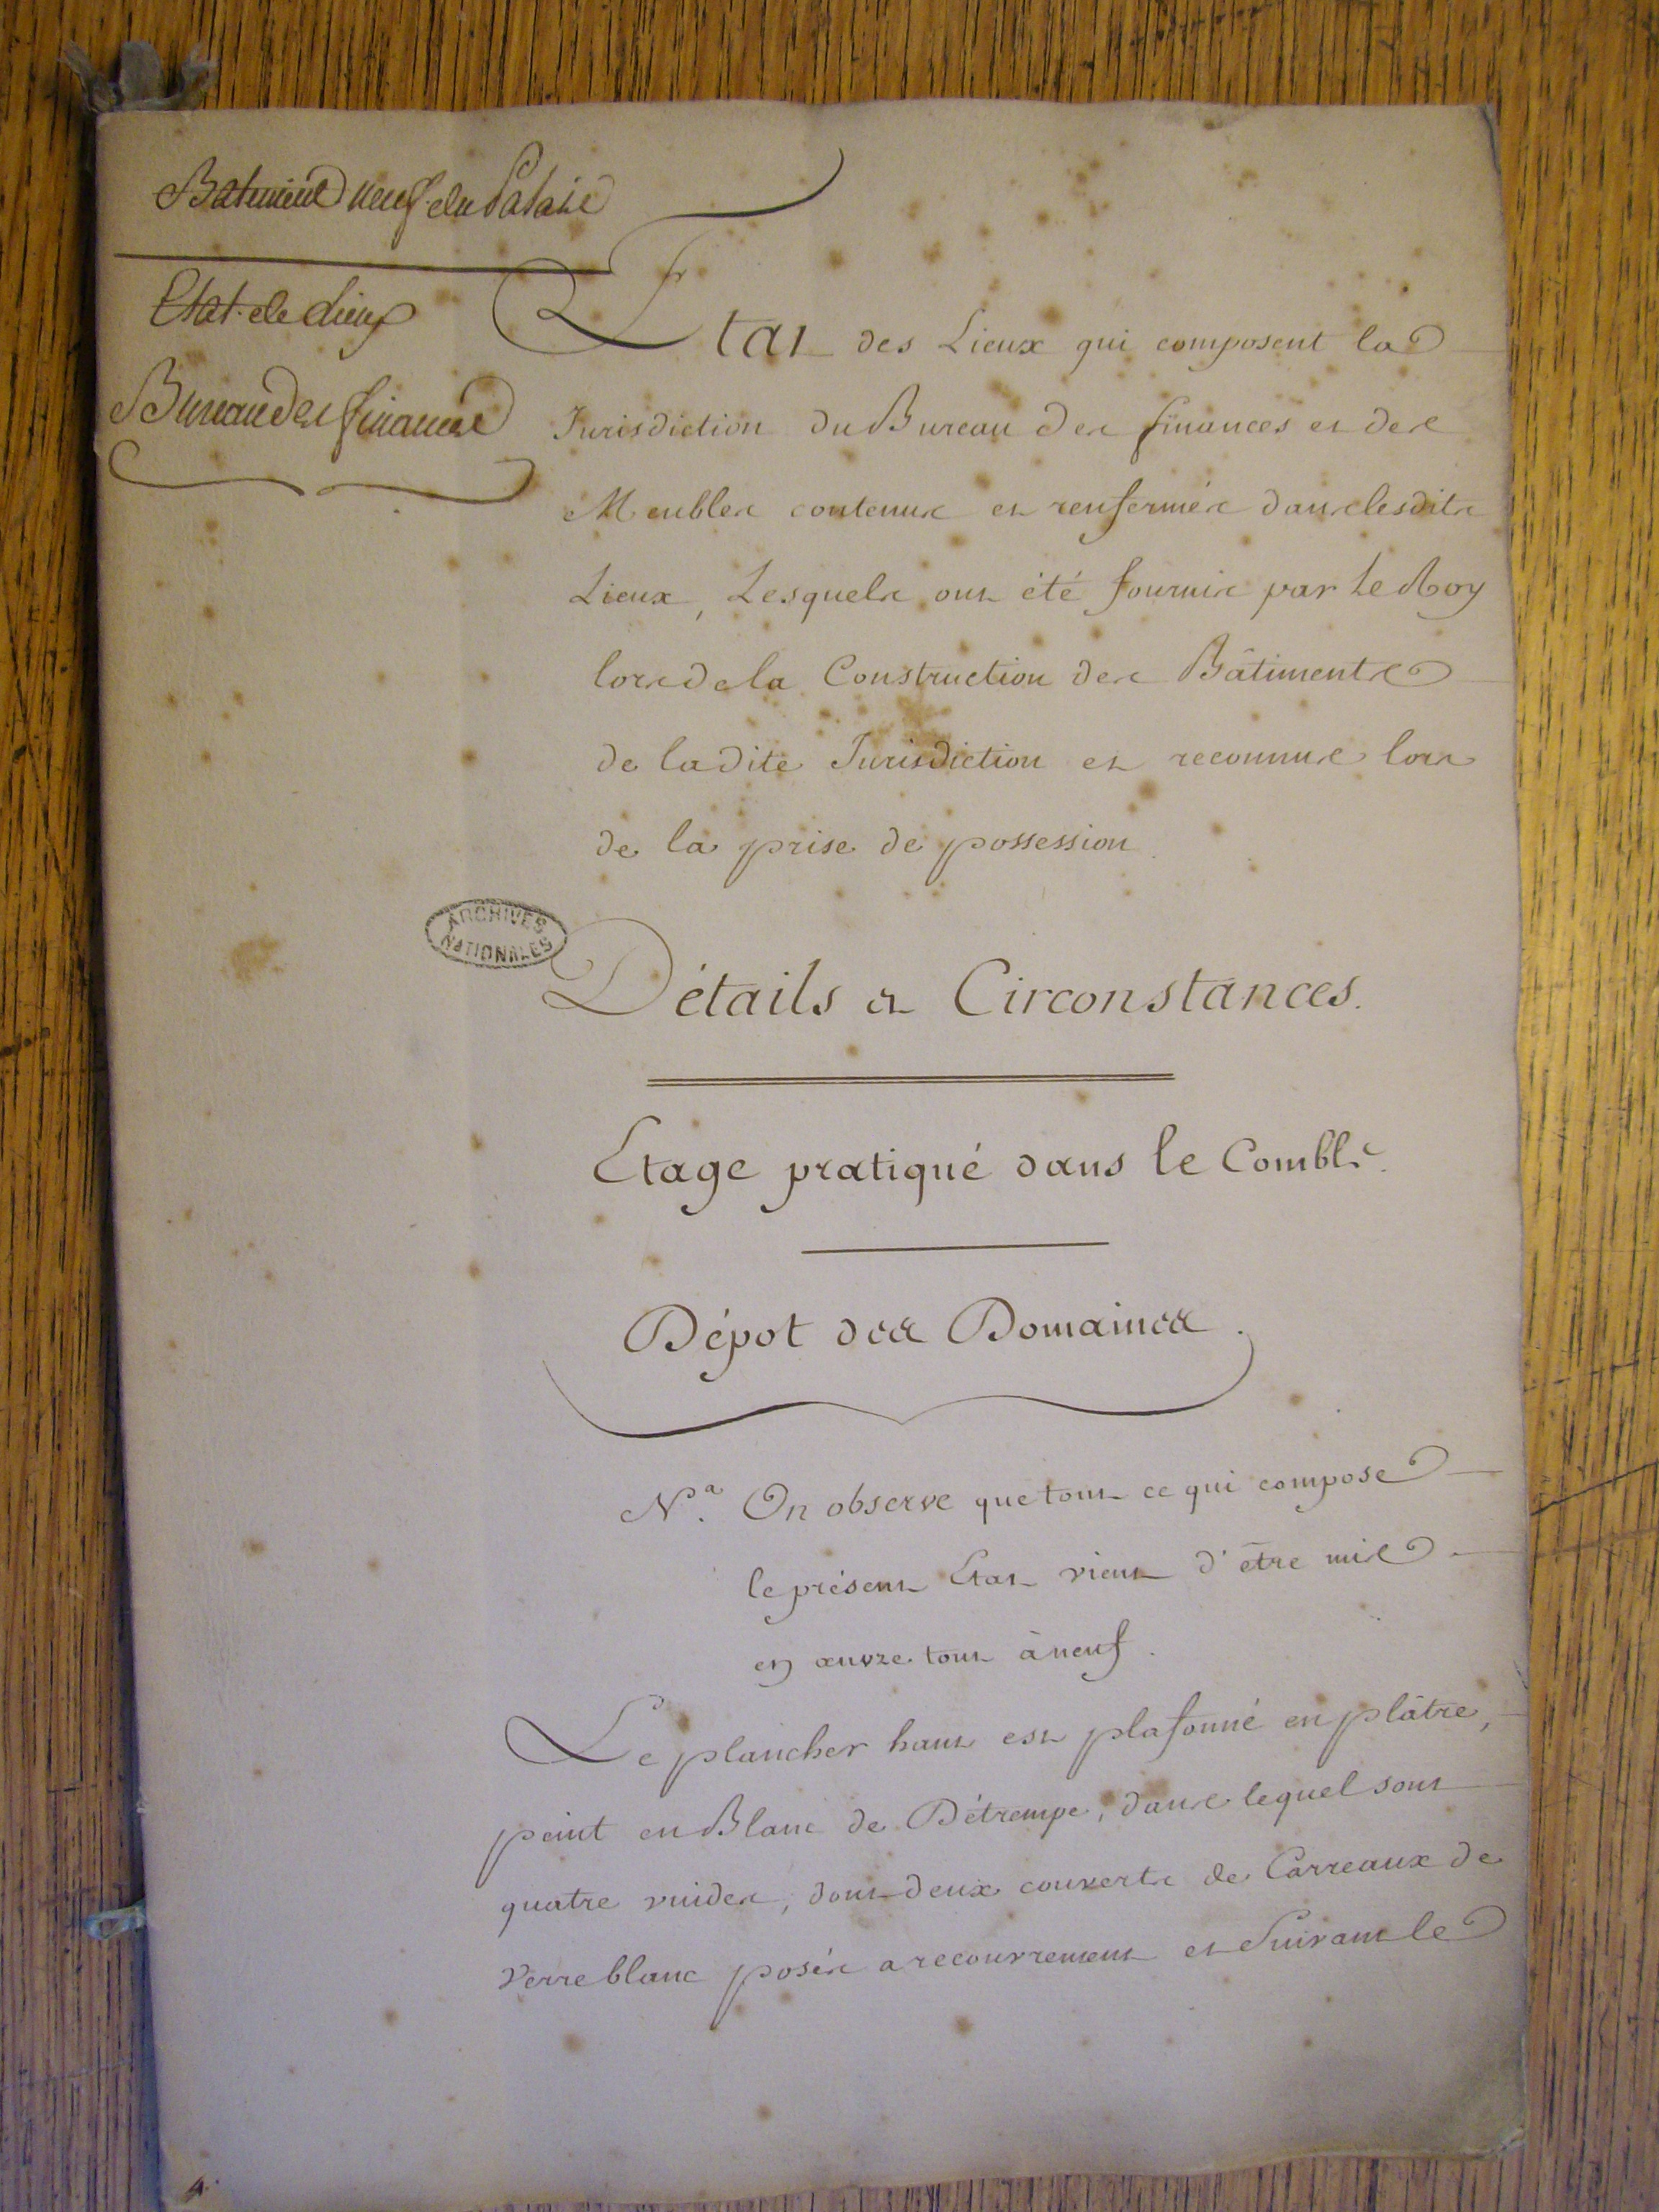 Batiment neuf du Palais
Etat de Lieux
Bureau des finances
Etat des Lieux qui composent la
Jurisdiction du Bureau des finances et des
Meubles contenus et renfermés dans lesdits
Lieux, Lesquels ont été fournis par Le Roy
lors de la Construction des Bâtiments
de ladite Jurisdiction et reconnus lors
de la prise de possession.
ARCHIVES
NATIONALES
Détails et Circonstances.
Etage pratiqué dans le Comble.
Dépot des Domaines.
N.a On observe que tout ce qui compose
le présent Etat vient d'être mis
en œuvre tout à neuf.
Le plancher haut est plafonné en plâtre,
peint en Blanc de Détrempe, dans lequel sont
quatre vuides, dont deux couverts de Carreaux de
Verre blanc posés a recouvrement et Suivant le